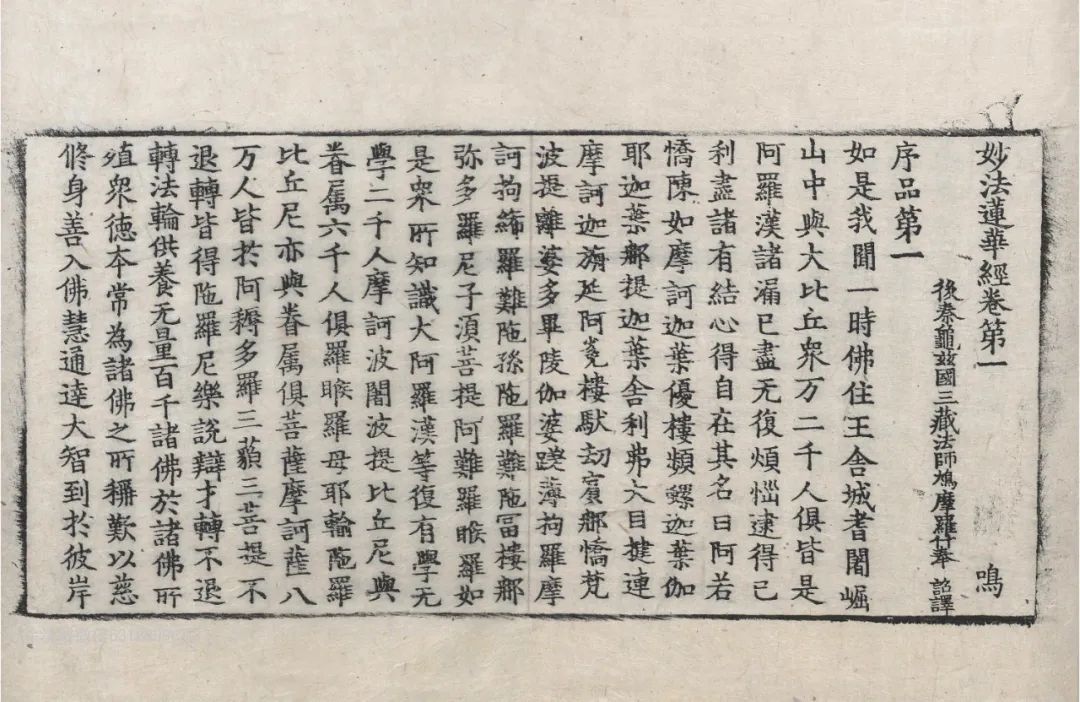 妙法蓮華經卷第一　鳴
後秦龜茲國三藏法師鳩摩羅什奉　詔譯
序品第一
如是我聞一時佛住王舍城耆闍崛
山中與大比丘眾万二千人俱皆是
阿羅漢諸漏已盡无復煩惱逮得己
利盡諸有結心得自在其名曰阿若
憍陳如摩訶迦葉優樓頻螺迦葉伽
耶迦葉那提迦葉舍利弗大目揵連
摩訶迦旃延阿㝹樓馱劫賓那憍梵
波提離婆多畢陵伽婆蹉薄拘羅摩
訶拘絺羅難陁孫陁羅難陁冨樓那
弥多羅尼子須菩提阿難羅睺羅如
是眾所知識大阿羅漢等復有學无
學二千人摩訶波闍波提比丘尼與
眷属六千人俱羅睺羅母耶輸陁羅
比丘尼亦與眷属俱菩薩摩訶薩八
万人皆於阿耨多羅三藐三菩提不
退轉皆得陁羅尼樂說辯才轉不退
轉法輪供養无量百千諸佛於諸佛所
殖眾德本常為諸佛之所稱歎以慈
脩身善入佛慧通達大智到於彼岸